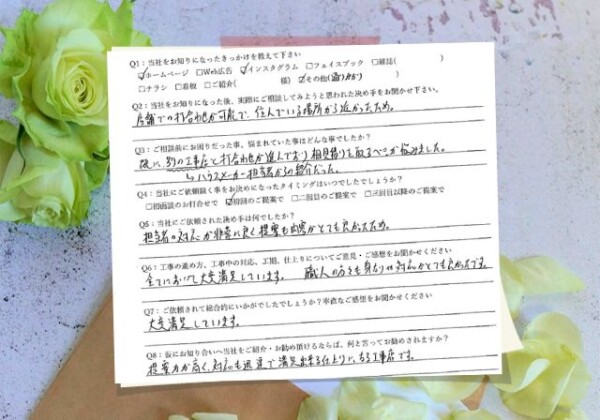 Q1：当社をお知りになったきっかけを教えて下さい
☑ホームページ □Web広告 ☑インスタグラム □フェイスブック □雑誌( )
□チラシ □看板 □ご紹介( 様) ☑その他( )
Q2：当社をお知りになった後、実際にご相談してみようと思われた決め手をお聞かせ下さい。
店舗での打合わせが可能で、住んでいる場所から近かったため。
Q3：ご相談前にお困りだった事、悩まれていた事はどんな事でしたか？
既に、別の工事店と打合わせが進んでおり相見積りを取るべきか悩みました。
↳ハウスメーカー担当者からの紹介だった。
Q4：当社にご依頼頂く事をお決めになったタイミングはいつでしたでしょうか？
□初面談のお打合せで ☑初回のご提案で □二回目のご提案で □三回目以降のご提案で
Q5：当社にご依頼された決め手は何でしたか？
担当者の対応が非常に良く提案も内容がとても良かったため。
Q6：工事の進め方、工事中の対応、工期、仕上りについてご意見・ご感想をお聞かせください
全てにおいて大変満足しています。 職人の方々も身なりや対応がとても良かったです。
Q7：ご依頼されて総合的にいかがでしたでしょうか？率直なご感想をお聞かせください
大変満足しています。
Q8：仮にお知り合いへ当社をご紹介・お勧め頂けるならば、何と言ってお勧めされますか？
提案力が高く、対応も迅速で満足出来る仕上りに、なる工事店です。